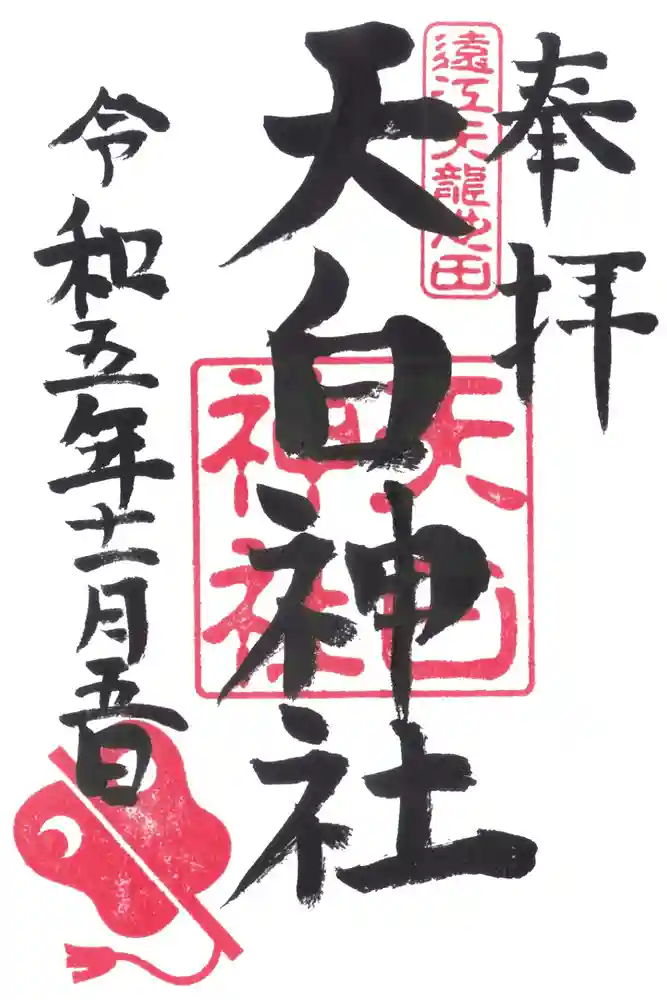 奉拝
遠江天龍池田
天白神社
天白神社
令和五年十一月五日